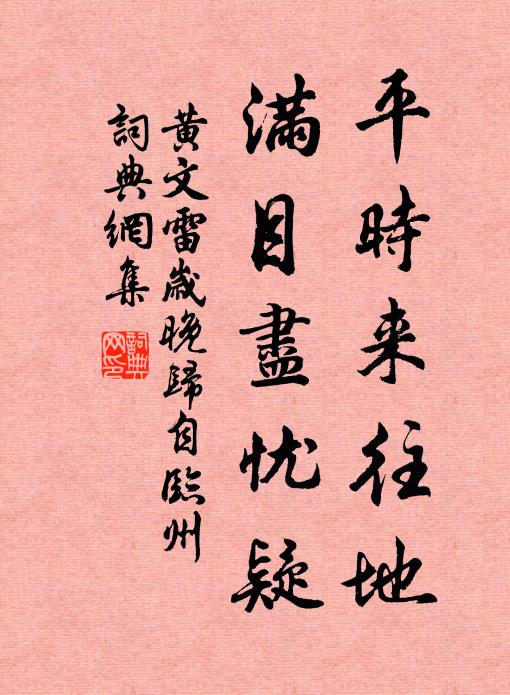 平時来往地
滿目盡忧疑
黃文雷歲晚歸自臨州
詞典網集
詞典網印